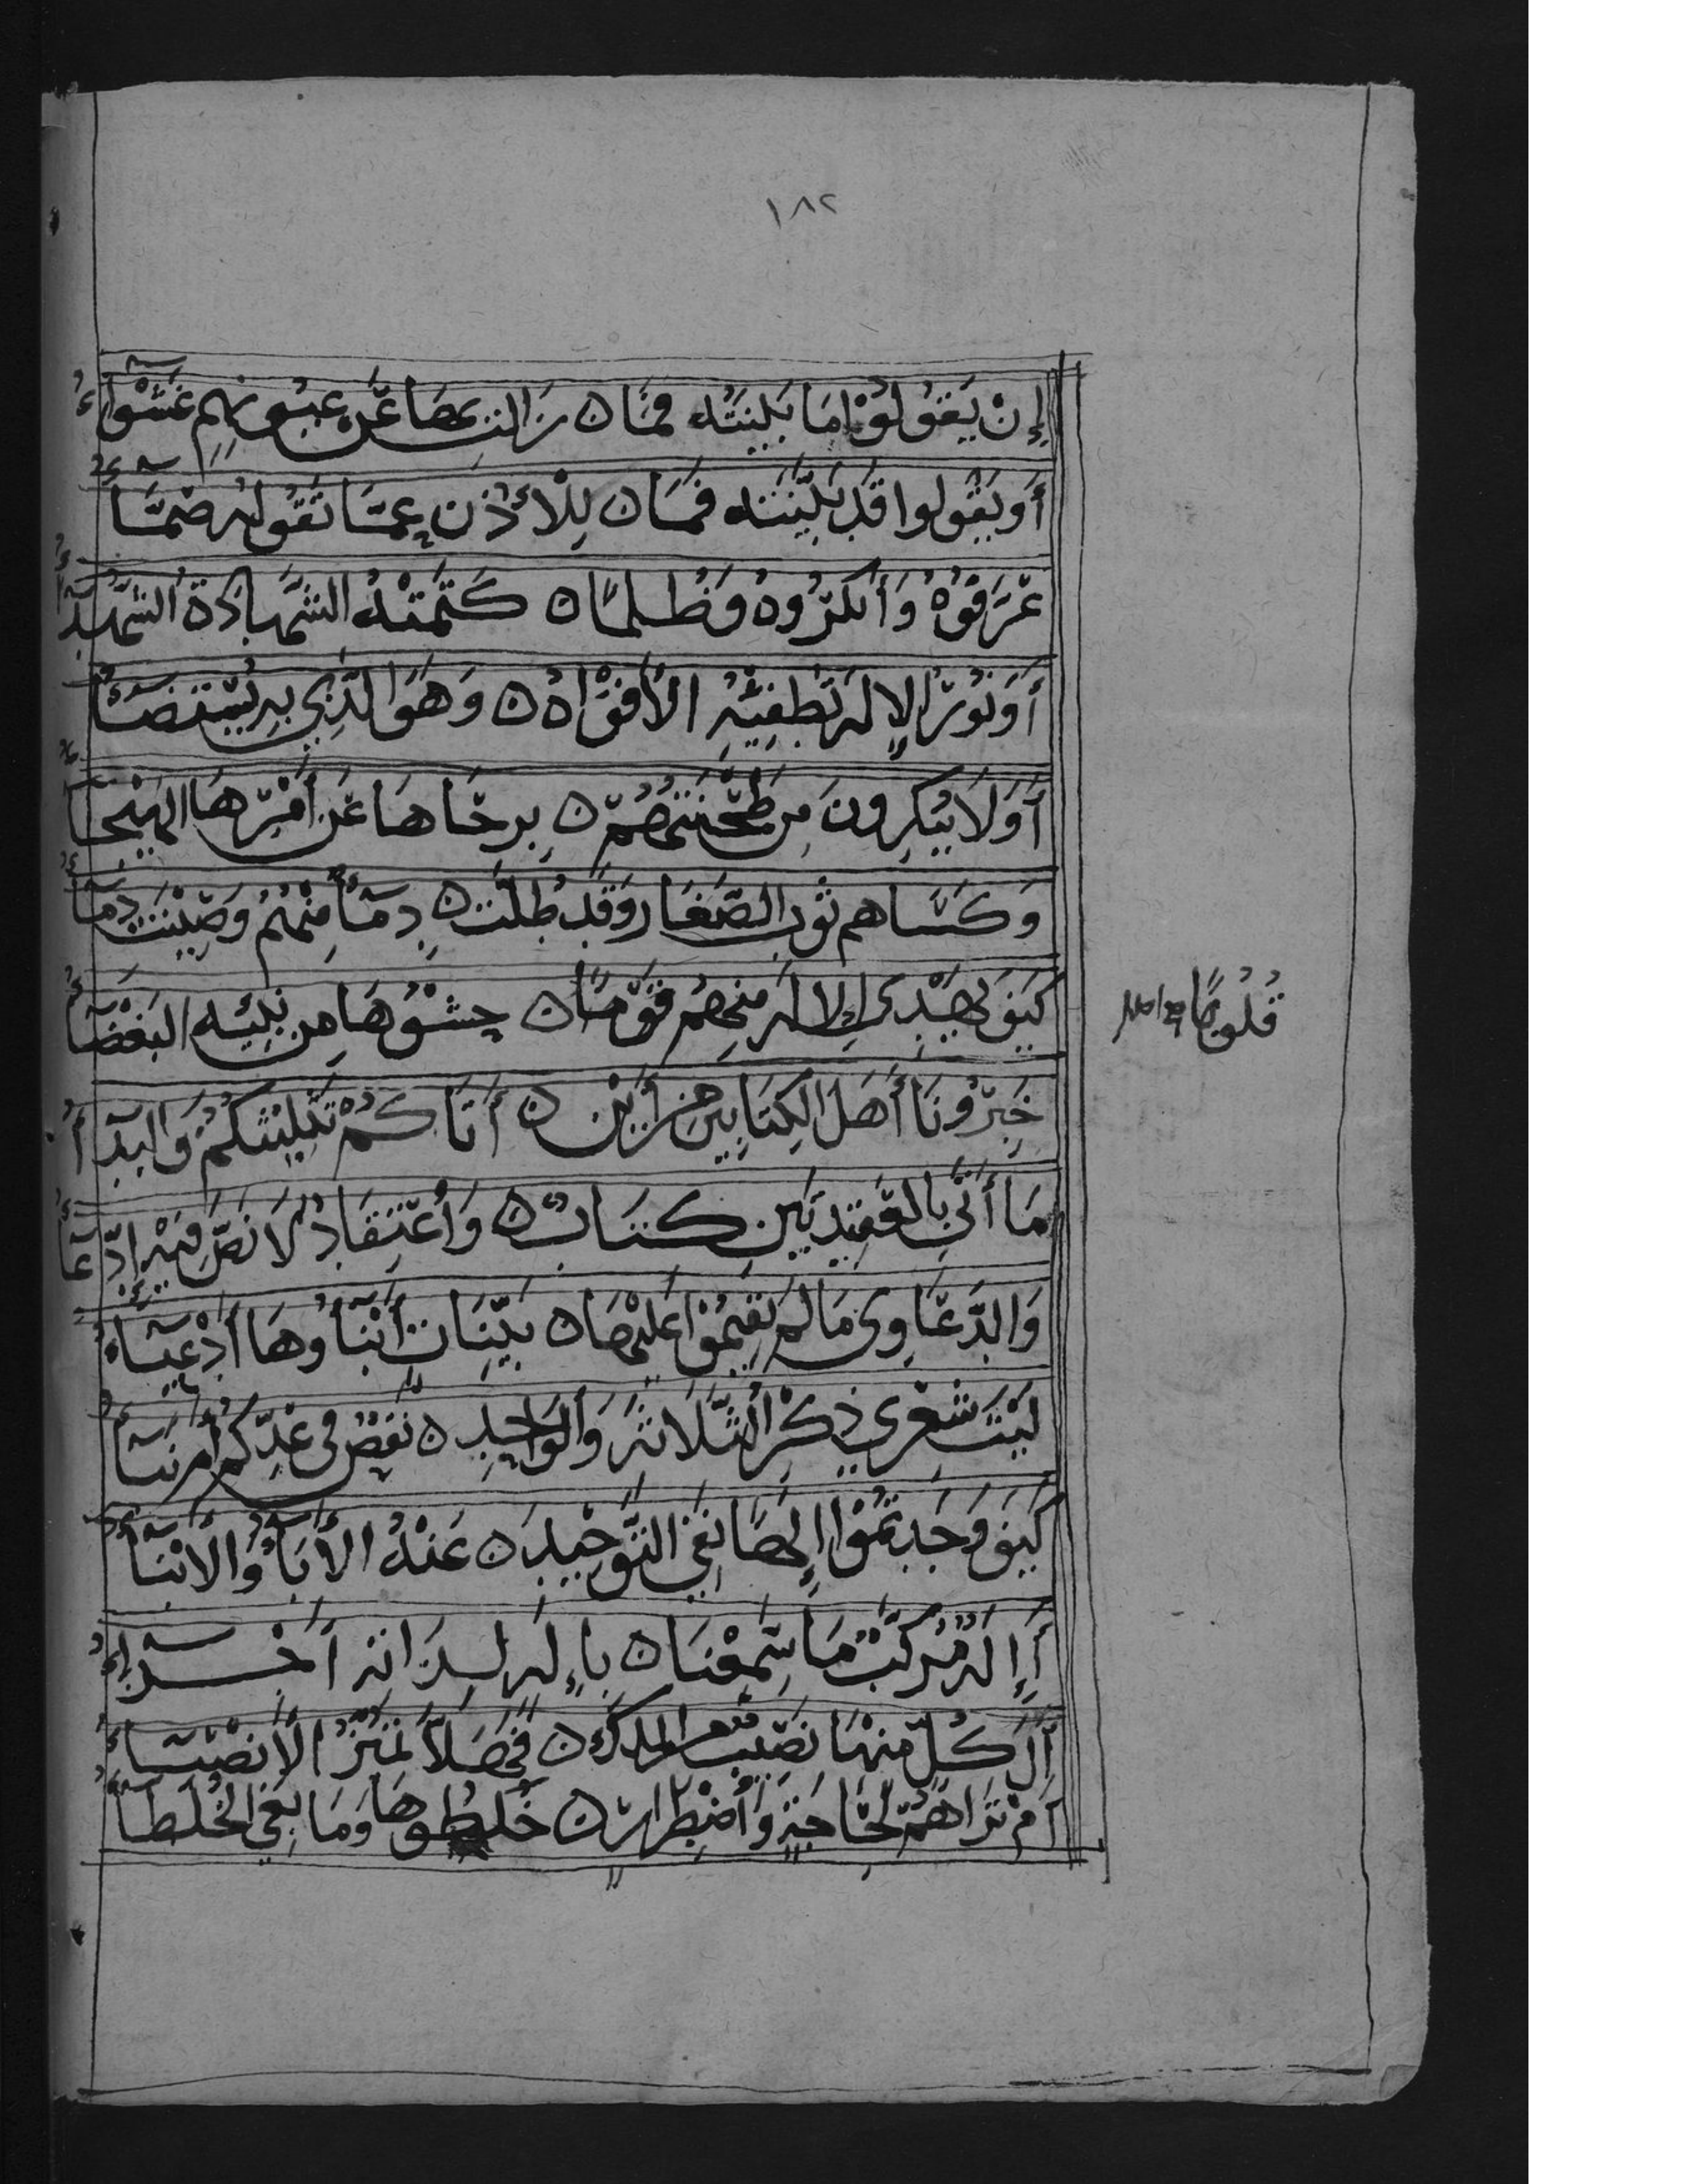 ١٨٢
إِنْ يَقُولُوْا مَا بَيَّنَتْهُ فَمَا ۝ زَالَتْ بِهَا عَنْ عُيُونِهِمْ غَشْوَاءُ
أَوْ يَقُولُوا قَدْ بَيَّنَتْهُ فَمَا ۝ لِلْأُذْنِ عَمَّا تَقُولُهُ صَمَّاءُ
عَرَفُوْهُ وَأَنْكَرُوهُ وَظُلْمًا ۝ كَتَمَتْهُ الشَّهَادَةَ الشُّهَدَاءُ
أَوَنُورُ الإِلَهِ تُطْفِئُهُ الأَفْوَاهُ ۝ وَهُوَ الَّذِي بِهِ يُسْتَضَاءُ
أَوَلَا يُنْكِرُونَ مِنْ طَحَنَتْهُمْ ۝ بِرِحَاهَا عَنْ أَمْرِهَا الهَيْجَاءُ
وَكَسَاهُمْ ثَوْبَ الصَّغَارِ وَقَدْ طُلَّتْ ۝ دِمَاءٌ مِنْهُمْ وَصِيْنَتْ دِمَاءُ
كَيْفَ يَهْدِي الإِلَهُ مِنْهُمْ قَوْمًا ۝ حَشْوُهَا مِنْ نَبِيِّهِ البَغْضَاءُ
قُلُوبًا
خَبِّرُونَا أَهْلَ الكِتَابَيْنِ مِنْ أَيْنَ ۝ أَتَاكُمْ تَثْلِيْثُكُمْ وَالبَدَاءُ
مَا أَتَى بِالعَقِيدَتَيْنِ كِتَابٌ ۝ وَاعْتِقَادٌ لَا نَصَّ فِيْهِ ادِّعَاءُ
وَالدَّعَاوِى مَا لَمْ تُقِيْمُوْا عَلَيْهَا ۝ بَيِّنَاتٍ أَبْنَاؤُهَا أَدْعِيَاءُ
لَيْتَ شِعْرِي ذِكْرُ الثَّلَاثَةِ وَالوَاحِدِ ۝ نَقْصٌ فِي عَدِّكُمْ أَمْ نَمَاءُ
كَيْفَ وَجَدْتُمُوْا إِلَهًا نَفَى التَّوْحِيْدَ ۝ عَنْهُ الأَبَاءُ وَالأَبْنَاءُ
أَإِلَهٌ مُرَكَّبٌ مَا سَمِعْنَا ۝ بِإِلَهٍ لِذَاتِهِ أَجْزَاءُ
أَلِكُلٍّ مِنْهَا نَصِيْبٌ مِنَ المُلْكِ ۝ فَهَلَّا تَمَيَّزُ الأَنْصِبَاءُ
أَمْ تَرَاهُمْ لِحَاجَةٍ وَاضْطِرَارٍ ۝ خَلَطُوهَا وَمَا بَغَى الخُلَطَاءُ